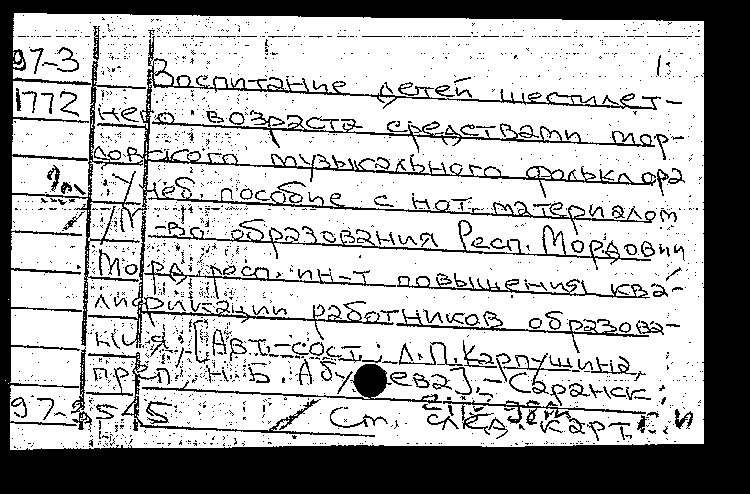 97-3 Воспитание детей шестилет-
1772 него возраста средствами мор-
довского музыкального фольклора
: Учеб. пособие с нот. материалом
/ М-во образования Респ. Мордовии
Морд. респ. ин-т повышения ква-
лификации работников образова-
ния; [Авт.-сост.: Л.П.Карпушина,
преп., Н.Б. Абу ева]. - Саранск:
97-3545 / См. след. карт.